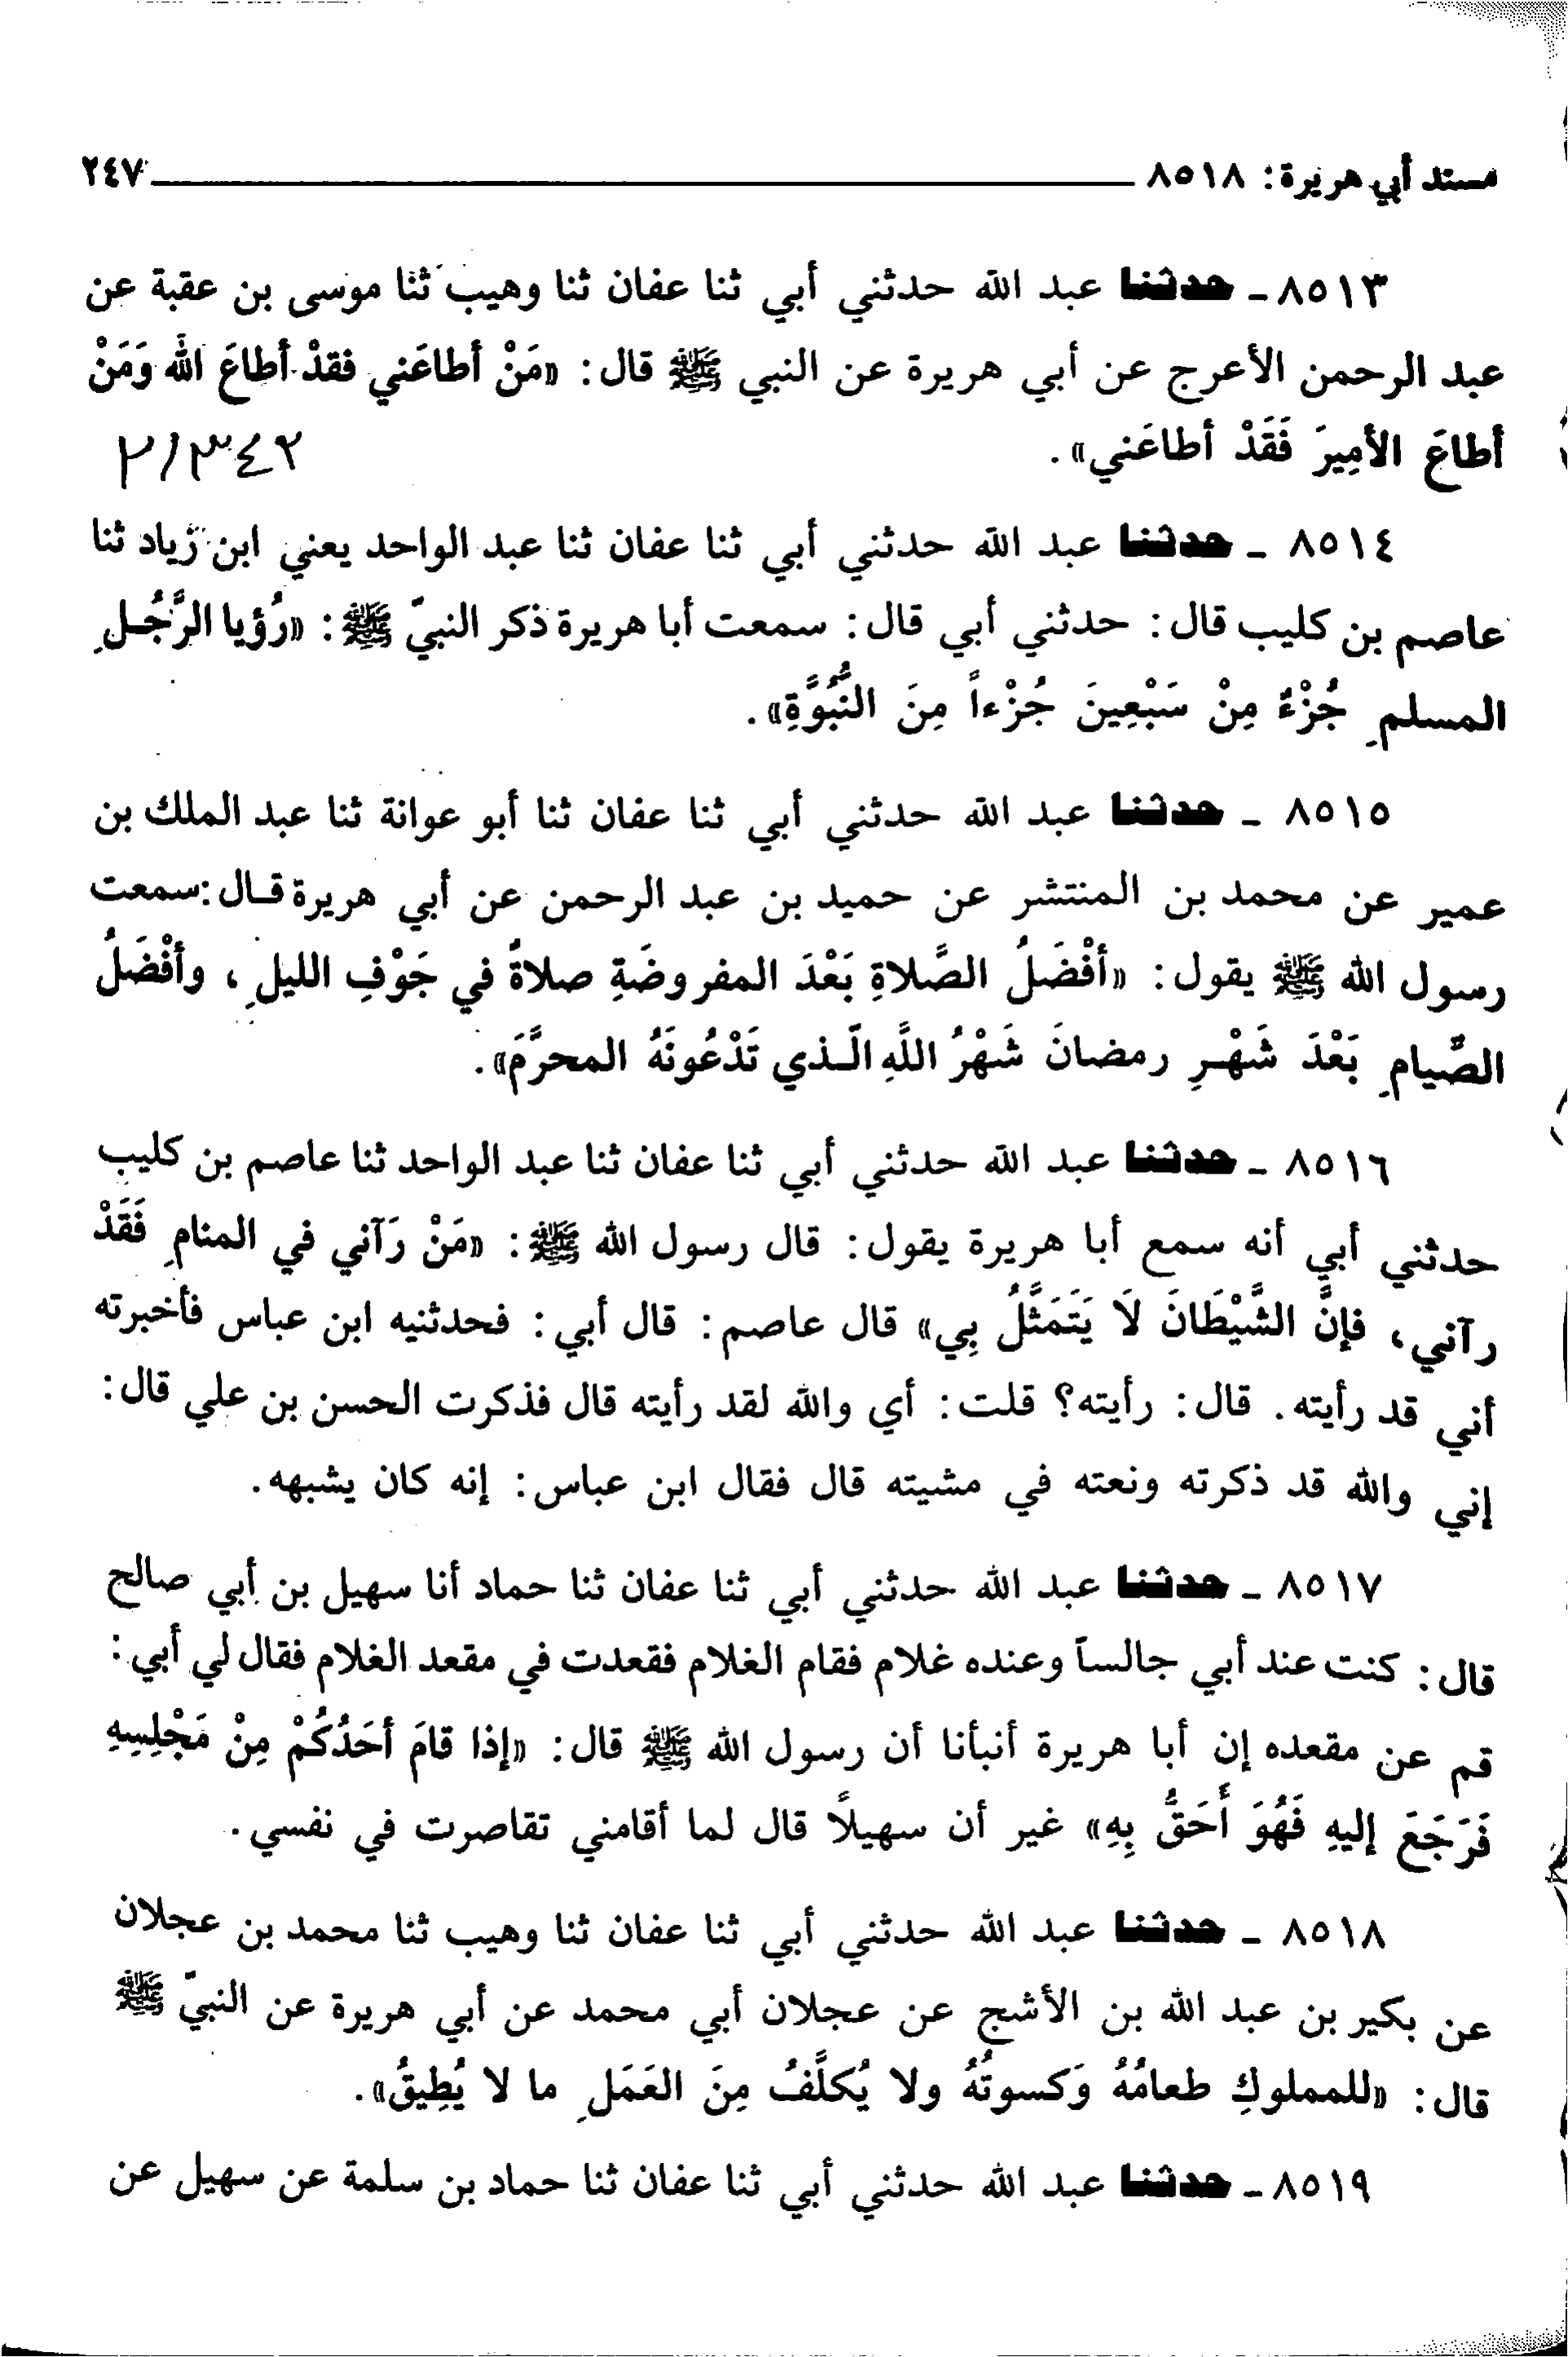 مسند أبي هريرة: ٨٥١٨ ٢٤٧
٨٥١٣ - حدثنا عبد الله حدثني أبي ثنا عفان ثنا وهيب ثنا موسى بن عقبة عن
عبد الرحمن الأعرج عن أبي هريرة عن النبي ﷺ قال: «مَنْ أطاعَني فقدْ أطاعَ الله وَمَنْ
أطاعَ الأمِيرَ فَقَدْ أطاعَني».
٢/٣٤٢
٨٥١٤ - حدثنا عبد الله حدثني أبي ثنا عفان ثنا عبد الواحد يعني ابن زياد ثنا
عاصم بن كليب قال: حدثني أبي قال: سمعت أبا هريرة ذكر النبيّ ﷺ: «رُؤيا الرَّجُـلِ
المسلمِ جُزْءٌ مِنْ سَبْعِينَ جُزْءاً مِنَ النُّبُوَّةِ».
٨٥١٥ - حدثنا عبد الله حدثني أبي ثنا عفان ثنا أبو عوانة ثنا عبد الملك بن
عمير عن محمد بن المنتشر عن حميد بن عبد الرحمن عن أبي هريرة قـال: سمعت
رسول الله ﷺ يقول: «أفْضَلُ الصَّلاةِ بَعْدَ المفروضَةِ صلاةٌ في جَوْفِ الليلِ، وأفْضَلُ
الصِّيامِ بَعْدَ شَهْـرِ رمضانَ شَهْرُ اللَّهِ الّـذي تَدْعُونَهُ المحرَّمَ».
٨٥١٦ - حدثنا عبد الله حدثني أبي ثنا عفان ثنا عبد الواحد ثنا عاصم بن كليب
حدثني أبي أنه سمع أبا هريرة يقول: قال رسول الله ﷺ: «مَنْ رَآني في المنامِ فَقَدْ
رآني، فإنَّ الشَّيْطَانَ لَا يَتَمَثَّلُ بِي» قال عاصم: قال أبي: فحدثنيه ابن عباس فأخبرته
أني قد رأيته. قال: رأيته؟ قلت: أي والله لقد رأيته قال فذكرت الحسن بن علي قال:
إني والله قد ذكرته ونعته في مشيته قال فقال ابن عباس: إنه كان يشبهه.
٨٥١٧ - حدثنا عبد الله حدثني أبي ثنا عفان ثنا حماد أنا سهيل بن أبي صالح
قال: كنت عند أبي جالساً وعنده غلام فقام الغلام فقعدت في مقعد الغلام فقال لي أبي:
قم عن مقعده إن أبا هريرة أنبأنا أن رسول الله ﷺ قال: «إذا قامَ أحَدُكُمْ مِنْ مَجْلِسِهِ
فَرَجَعَ إليهِ فَهُوَ أَحَقُّ بِهِ» غير أن سهيلاً قال لما أقامني تقاصرت في نفسي.
٨٥١٨ - حدثنا عبد الله حدثني أبي ثنا عفان ثنا وهيب ثنا محمد بن عجلان
عن بكير بن عبد الله بن الأشج عن عجلان أبي محمد عن أبي هريرة عن النبيّ ﷺ
قال: «للمملوكِ طعامُهُ وَكسوتُهُ ولا يُكلَّفُ مِنَ العَمَلِ ما لا يُطِيقُ».
٨٥١٩ - حدثنا عبد الله حدثني أبي ثنا عفان ثنا حماد بن سلمة عن سهيل عن